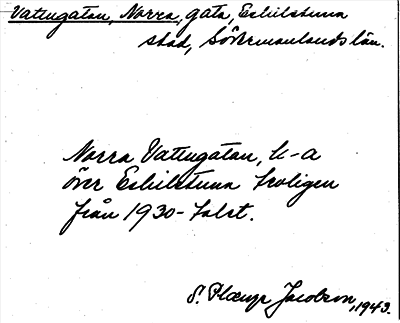 Vattugatan, Norra, gata, Eskilstuna
stad, Södermanlands län.
Norra Vattugatan, k-a
över Eskilstuna troligen
från 1930-talet.
S. Jacobson, 1943.